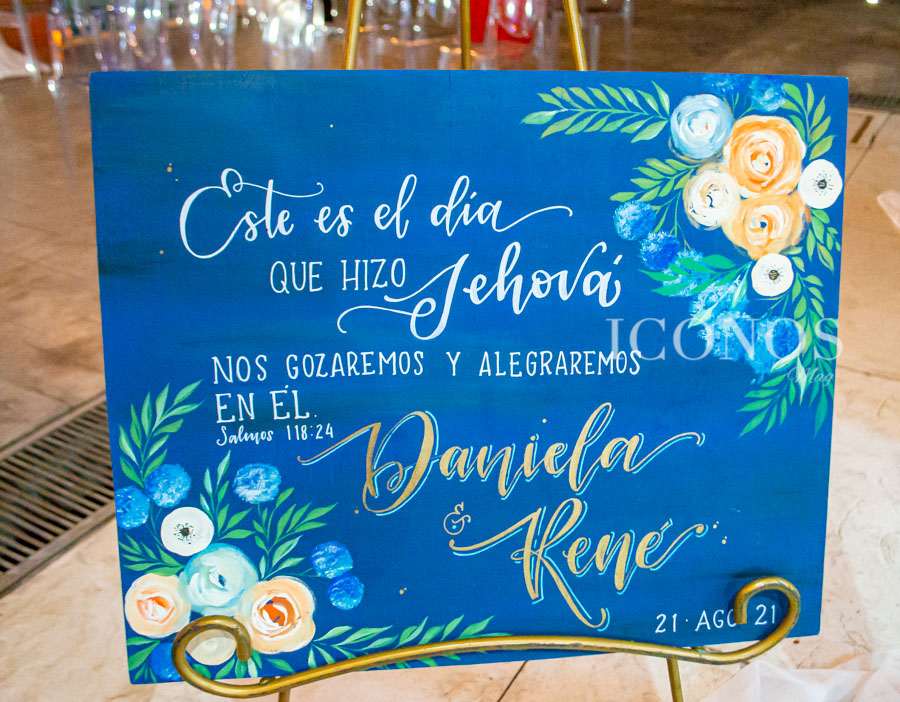 Este es el día
QUE HIZO Jehová
NOS GOZAREMOS Y ALEGRAREMOS
EN ÉL.
Salmos 118:24
Daniela
& René
21 · AGO 21
ICONOS
Mag